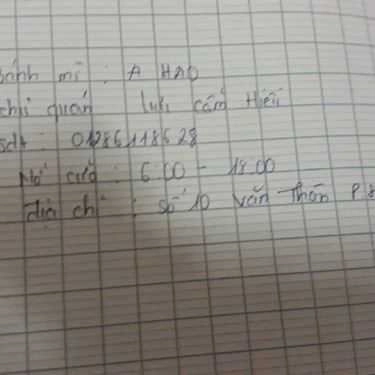 bánh mì : A HAO
chủ quán lưu cẩm Hiếu
sđt : 01286118628
Mở cửa : 6.00 - 18.00
địa chỉ : số 10 văn Thân P